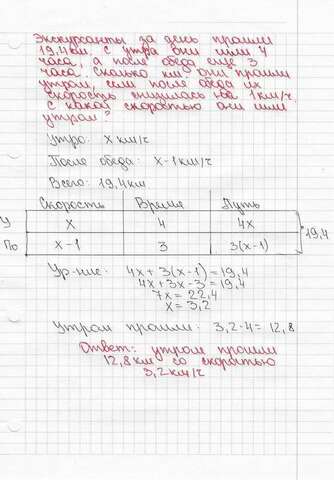 Экскурсанты за день прошли
19,4 км. С утра они шли 4
часа, а после обеда ещё 3
часа. Сколько км они прошли
утром, если после обеда их
скорость снизилась на 1 км/ч.
С какой скоростью они шли
утром?
Утро: х км/ч
После обеда: х-1 км/ч
Всего: 19,4 км
Скорость Время Путь
У х 4 4х
По х-1 3 3(х-1) 19,4
Ур-ние: 4х+3(х-1)=19,4
4х+3х-3=19,4
7х=22,4
х=3,2
Утром прошли: 3,2·4=12,8
Ответ: утром прошли
12,8 км со скоростью
3,2 км/ч